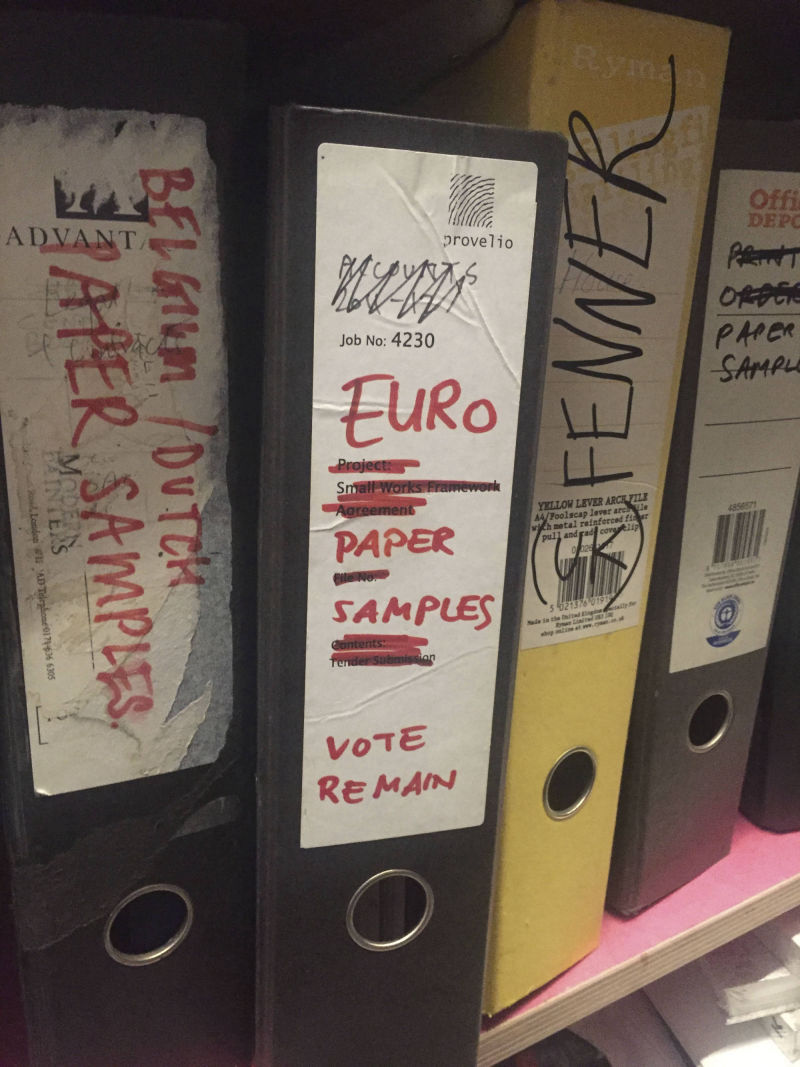 ADVANTA
BELGIUM / DUTCH
PAPER SAMPLES.
MODERN
PAINTERS
provelio
ACCOUNTS
Job No: 4230
EURO
Project:
Small Works Framework
Agreement
PAPER
File No:
SAMPLES
Contents:
Tender Submission
VOTE
REMAIN
Ryman
FENNER
YELLOW LEVER ARCH FILE
A4/Foolscap lever arch file
with metal reinforced finger
pull and rado cover clip
Made in the United Kingdom especially for
Ryman Limited
shop online at www.ryman.co.uk
Offi
DEPO
PRINT
ORDER
PAPER
SAMPL
4856571